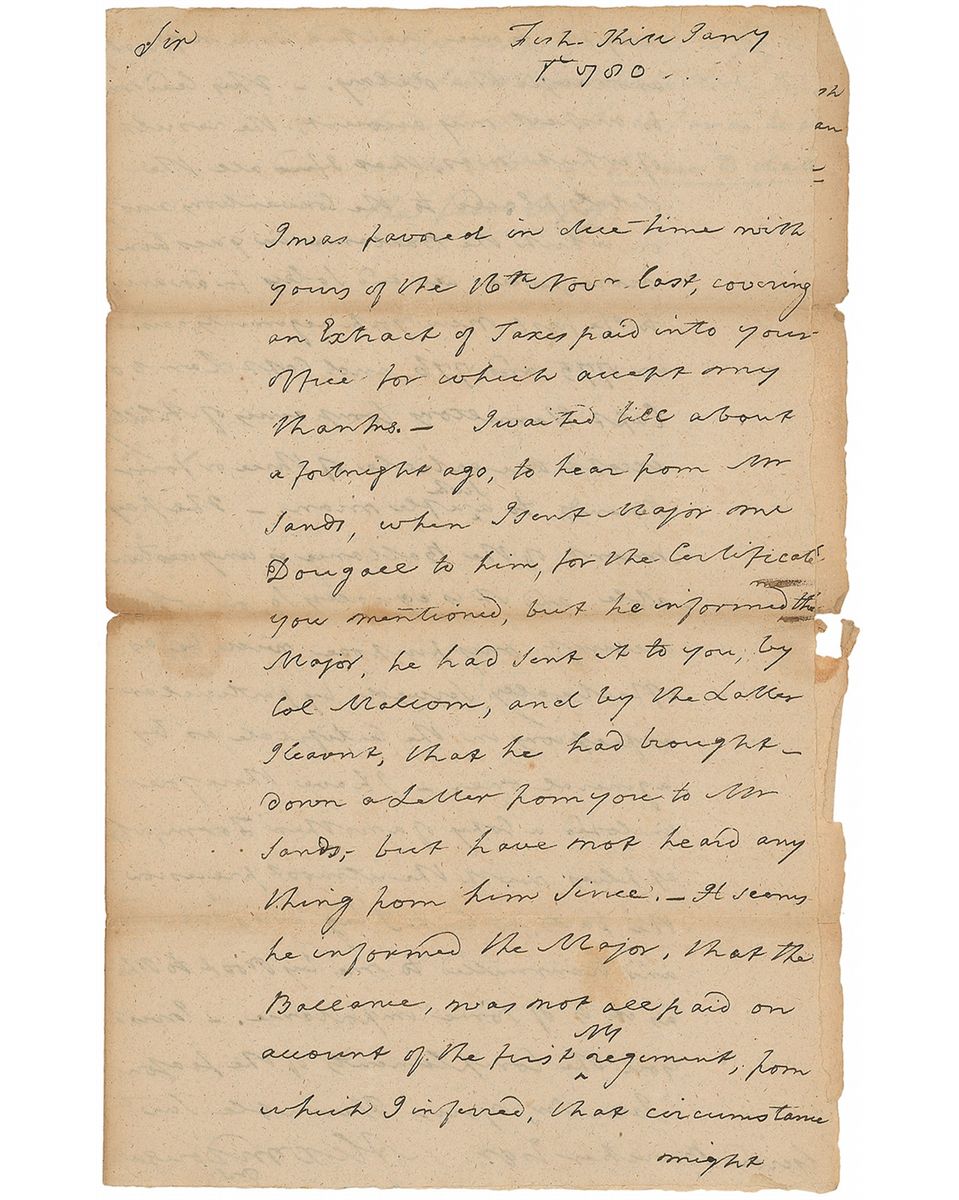 Sir
Fish-Kill Jany
1st 1780.
I was favored in due time with
yours of the 16th Novr. last, covering
an Extract of Taxes paid into your
Office for which accept my
thanks. — I waited till about
a fortnight ago, to hear from Mr
Sands, when I sent Major mc
Dougall to him, for the Certificate
you mentioned, but he informed the
Major, he had sent it to you, by
Col Malcom, and by the Latter
I learnt, that he had brought—
down a Letter from you to Mr
Sands,- but have not heard any
thing from him since. — It seems
he informed the Major, that the
Ballance, was not all paid on
account of the first ^ NY regiment, from
which I inferred, that circumstance
might